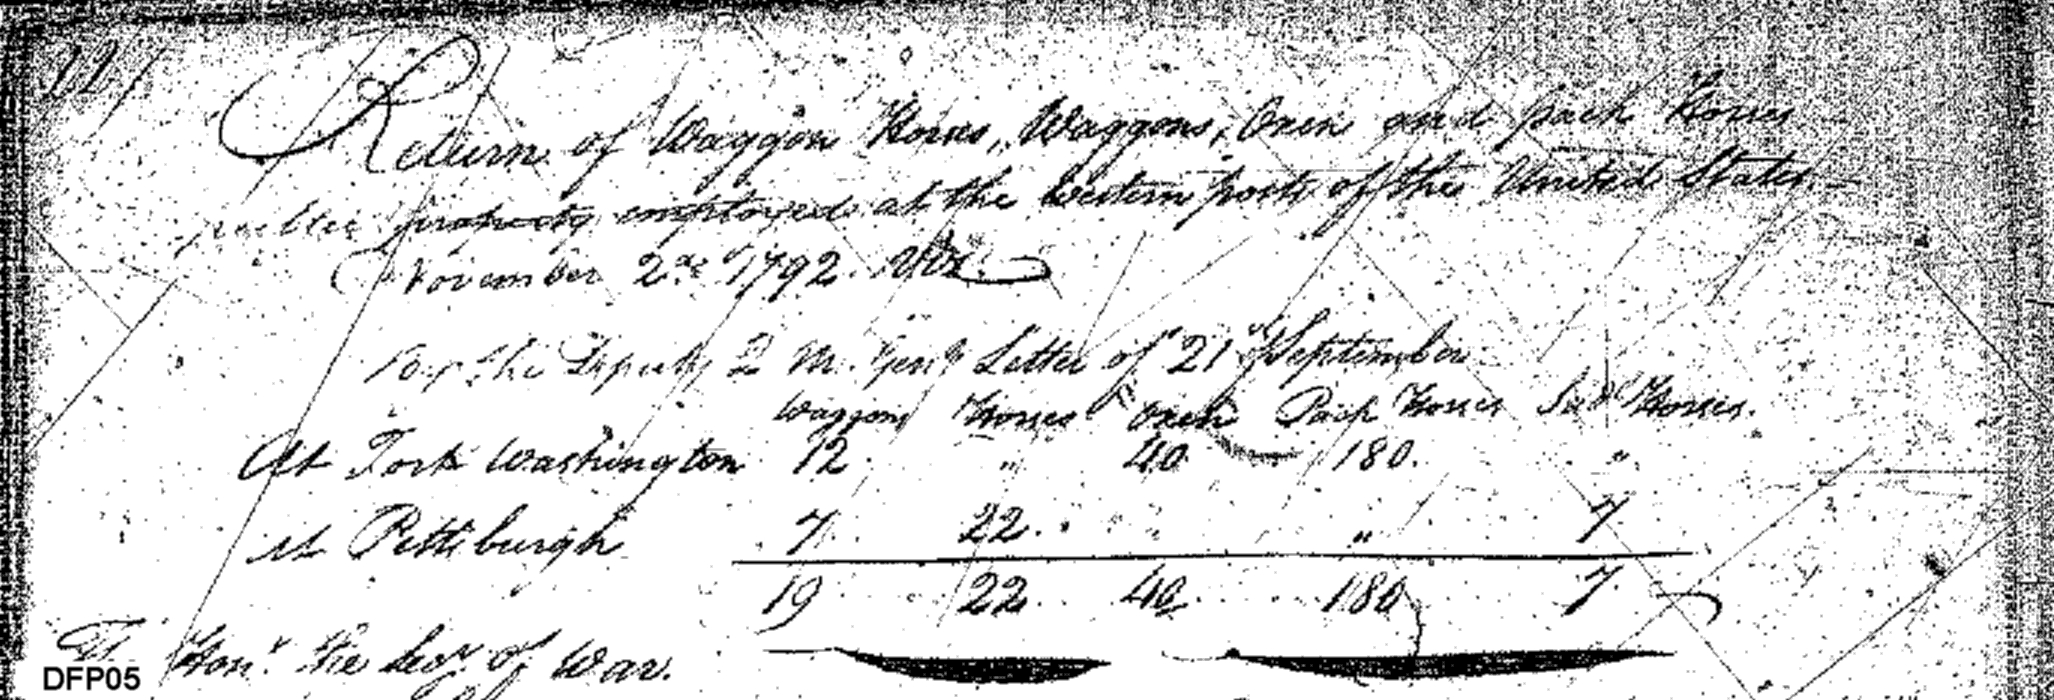 Return of Waggon Horses, Waggons, Oxen and pack Horses
public property employed at the western posts of the United States
November 2nd 1792. Viz.
the Deputy Q M. Genls Letter of 21st September
Waggons Horses Oxen Pack Horses Sad Horses.
At Fort Washington 12 " 40 180. "
At Pittiburgh 7 22. " " 7
19 22 40 180 7
The Honr. the Secy. of War.
DFP05